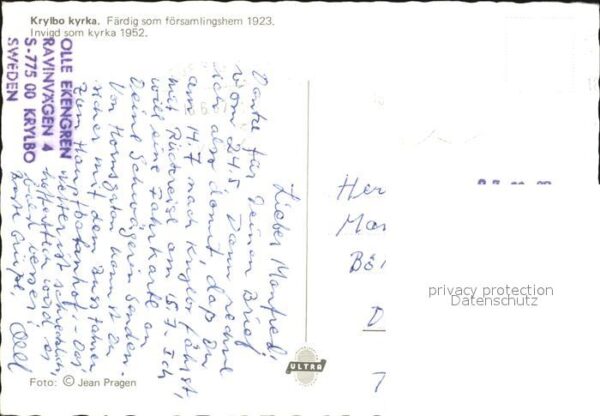 Krylbo kyrka. Färdig som församlingshem 1923.
Invigd som kyrka 1952.
OLLE EKENGREN
RAVINVÄGEN 4
S-775 00 KRYLBO
SWEDEN
Lieber Manfred,
Danke für Deinen Brief
vom 24.5. Dann rechne
ich also damit, daß Du
am 14.7 nach Krylbo fährst,
mit Rückreise am 15.7. Ich
will eine Fahrkarte an
Deine Schwägerin senden.
Von Hornsgatan kannst Du
sicher mit dem Bus fahren
zum Hauptbahnhof. - Das
Wetter ist schrecklich,
hoffentlich wird es
bald besser!
Olle
Her
Mar
D
privacy protection
Datenschutz
ULTRA
Foto: © Jean Pragen